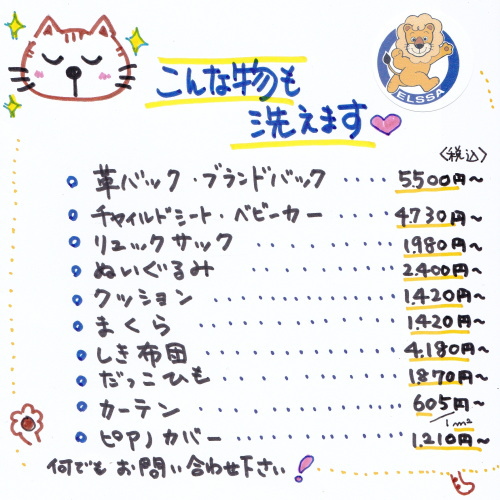 こんな物も
洗えます
ELSSA
〈税込〉
革バック・ブランドバック ・・・・ 5.500円〜
チャイルドシート・ベビーカー ・・・・ 4.730円〜
リュックサック ・・・・・・・・ 1.980円〜
ぬいぐるみ ・・・・・・・・・ 2.400円〜
クッション ・・・・・・・・・・ 1.420円〜
まくら ・・・・・・・・・・ 1.420円〜
しき布団 ・・・・・・・・・・ 4.180円〜
だっこひも ・・・・・・・・・ 1.870円〜
カーテン ・・・・・・・・・・・ 605円〜/1m²
ピアノカバー ・・・・・・・・・ 1.210円〜
何でもお問い合わせ下さい!